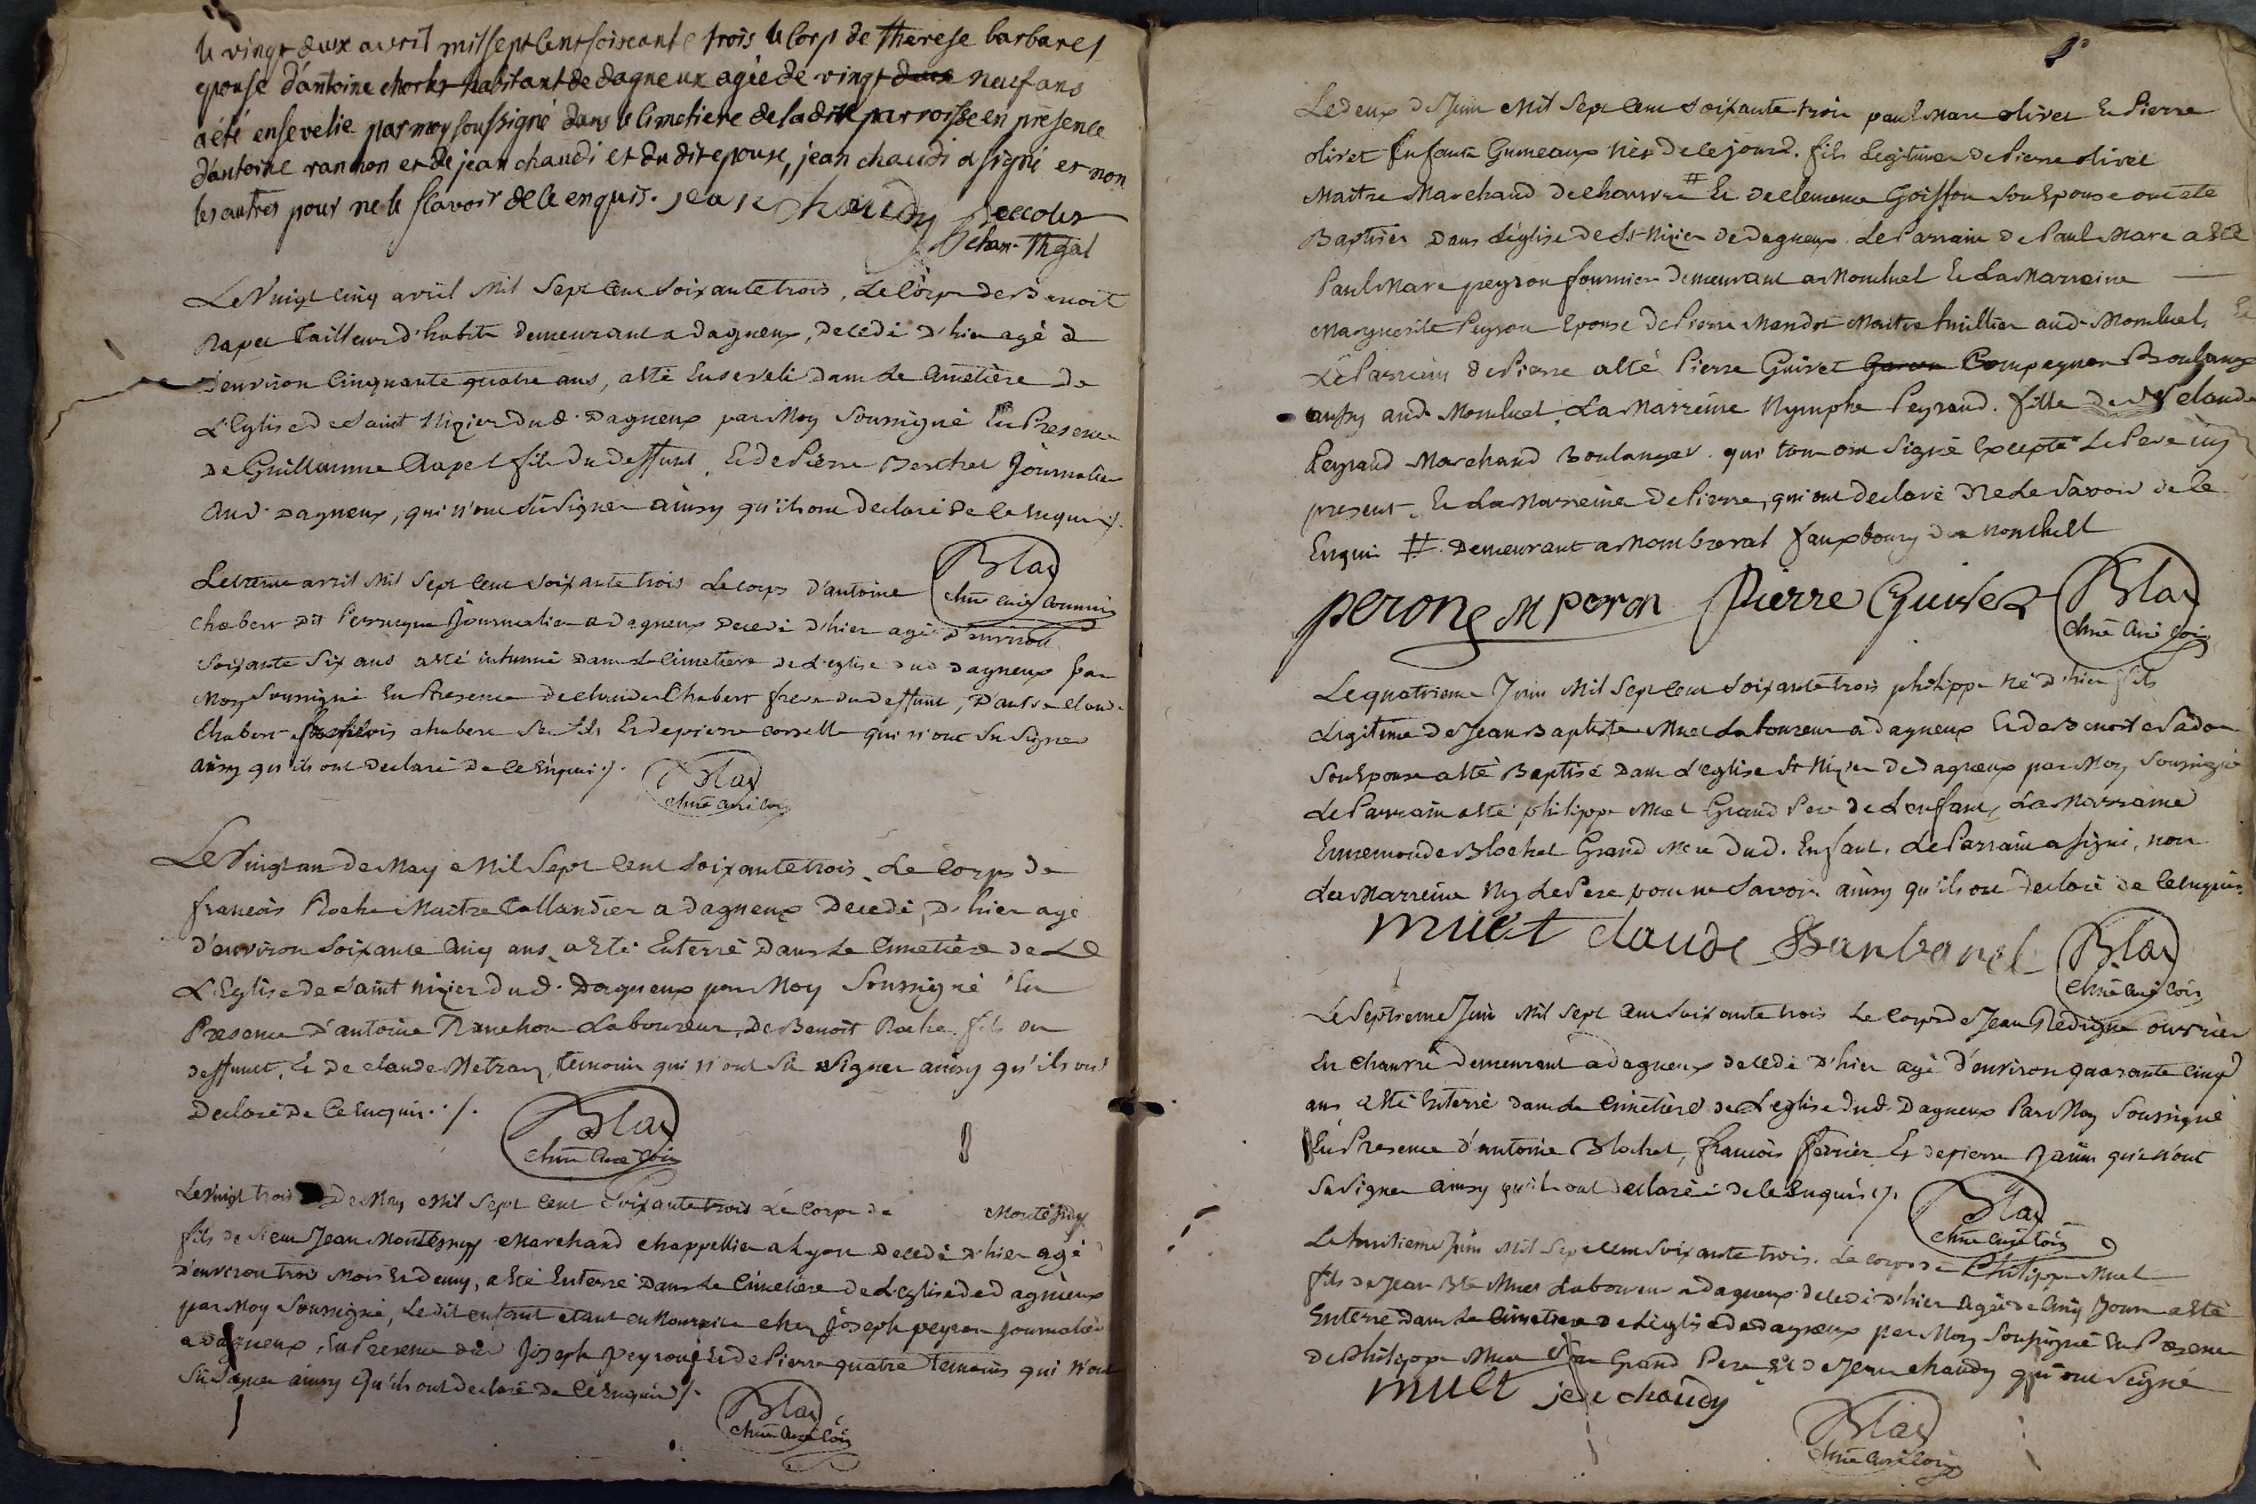 le vingt deux avril mil sept cent soiscante trois le Corp de therese barbaret
epouse d'antoine habitant de dagneux agée de vingt neuf ans
a été ensevelie par moy soussigné dans le Cimetiere de la dite parroisse en presence
d'antoine rannon et de jean chaudi et du dit epoux, jean chaudi a signé et non
les autres pour ne le sçavoir de ce enquis. jean chaudy
Le Vingt Cinq avril Mil Sept Cent Soixante trois, Le Corps de Benoit
Rapet Tailleur d'habits demeurant a dagneux, decedé d'hier agé
d'environ Cinquante quatre ans, a été Enseveli dans Le Cimetière de
L'Eglise de Saint Nizier dud. Dagneux par Moy Soussigné En Presence
de Guillaume Rapet fils du deffunt, Et de Pierre Berthet Journalier
aud. Dagneux, qui n'ont sû signer ainsy qu'ils ont declaré de ce Enquis ./.
Le trente avril Mil Sept Cent Soixante trois Le corps d'antoine
Chabert dit Perruque Journalier a Dagneux Decedé d'hier agé d'environ
Soixante Six ans a été inhumé dans Le Cimetiere de L'eglise dud Dagneux par
Moy Soussigné En Presence de claude Chabert frere du deffunt, D'autre claude
Chabert chabert Son fils Et de pierre qui n'ont Su Signer
ainsy qu'ils ont Declaré De ce Enquis ./.
Blas
Le Vingt un de May Mil Sept Cent Soixante trois, Le Corps de
françois Roche Maitre Tallandier a Dagneux Decedé, D'hier agé
d'environ Soixante Cinq ans, a Eté Enterré Dans Le Cimetière de
L'Eglise de Saint nizier dud. Dagneux par Moy Soussigné En
Presence d'antoine Ranchon Laboureur, De Benoit Roche fils du
deffunct, Et de claude Metran, temoin qui n'ont Sû Signer ainsy qu'ils ont
Declaré De Ce Enquis ./.
Blas
Le Vingt trois De May Mil Sept Cent Soixante trois Le Corps de Montesuy
fils de Sieur Jean Montesuy Marchand Chappellier a Lyon Decedé d'hier agé
d'environ trois Mois Et demy, a Eté Enterré Dans Le Cimetiere De L'Eglise de dagnieux
par Moy Soussigné, Le dit enfant etant en Nourrice chez Joseph peyron Journalier
a Dagneux, En Presence dud Joseph Peyron, Et de Pierre quatre temoins qui n'ont
Sû Signer ainsy Qu'ils ont declaré De ce Enquis ./.
Blas
Le deux de Juin Mil Sept Cent Soixante trois paul Marc olivet Et Pierre
olivet Enfants Gumeaux Nés de ce jourd. fils Legitimes de Pierre olivet
Maitre Marchand de chanvre # Et de clemence Goiffon Son Epouse ont été
Baptisés Dans L'église de St Nizier de Dagneux. Le Parrain de Paul Marc a Eté
Paul Marc peyron fournier demeurant a Montluel Et La Marraine
Marguerite Peyron Epouse de Pierre Mandot Maitre aud. Montluel, Et
Le Parrain de Pierre a été Pierre Guivet Compagnon Boulanger
aussy aud. Montluel, La Marreine Nymphe Peyraud. fille de Sr claude
Peyraud Marchand Boulanger. qui tous ont Signé Excepté Le Pere icy
present. Et La Marreine de Pierre, qui ont declaré Ne Le Savoir de Ce
Enquis # Demeurant a Montbreval fauxbourg de Montluel
perong M peron Pierre Guivet Blas
Le quatrieme Juin Mil Sept Cent Soixante trois philippe Né d'hier fils
Legitime de Jean Baptiste Muet Laboureur a Dagneux Et de Benoite
Son Epouse a été Baptisé Dans L'eglise St Nizier de Dagneux par Moy Soussigné
Le Parrain a été philippe Muet Grand Pere de L'enfant, La Marraine
Ennemonde Blochet Grand Mere dud. Enfant. Le Parrain a signé, non
La Marreine Ny Le Pere pour ne Savoir ainsy qu'ils ont Declaré de Ce Enquis
muet claude Barbaret Blas
Le Septieme Juin Mil Sept Cent Soixante trois Le Corps de Jean ouvrier
En chanvre demeurant a dagneux decedé d'hier agé d'environ quarante cinq
ans a Eté Enterré dans Le Cimetiere de L'eglise dud. Dagneux Par Moy Soussigné
En Presence d'antoine Blochet, françois fevrier Et de pierre Janin qui n'ont
Su Signer ainsy qu'ils ont declaré de Ce Enquis ./.
Blas
Le huitieme Juin Mil Sept cent Soixante trois. Le corps de Philippe Muet
fils de Jean Bte Muet Laboureur a dagneux decedé d'hier Agé de Cinq Jours a Eté
Enterré Dans Le Cimetiere de L'eglise de dagneux par Moy Soussigné En Presence
de Philippe Muet Son Grand Pere Et de Jean chaudy qui ont Signé
muet jean chaudy
Blas